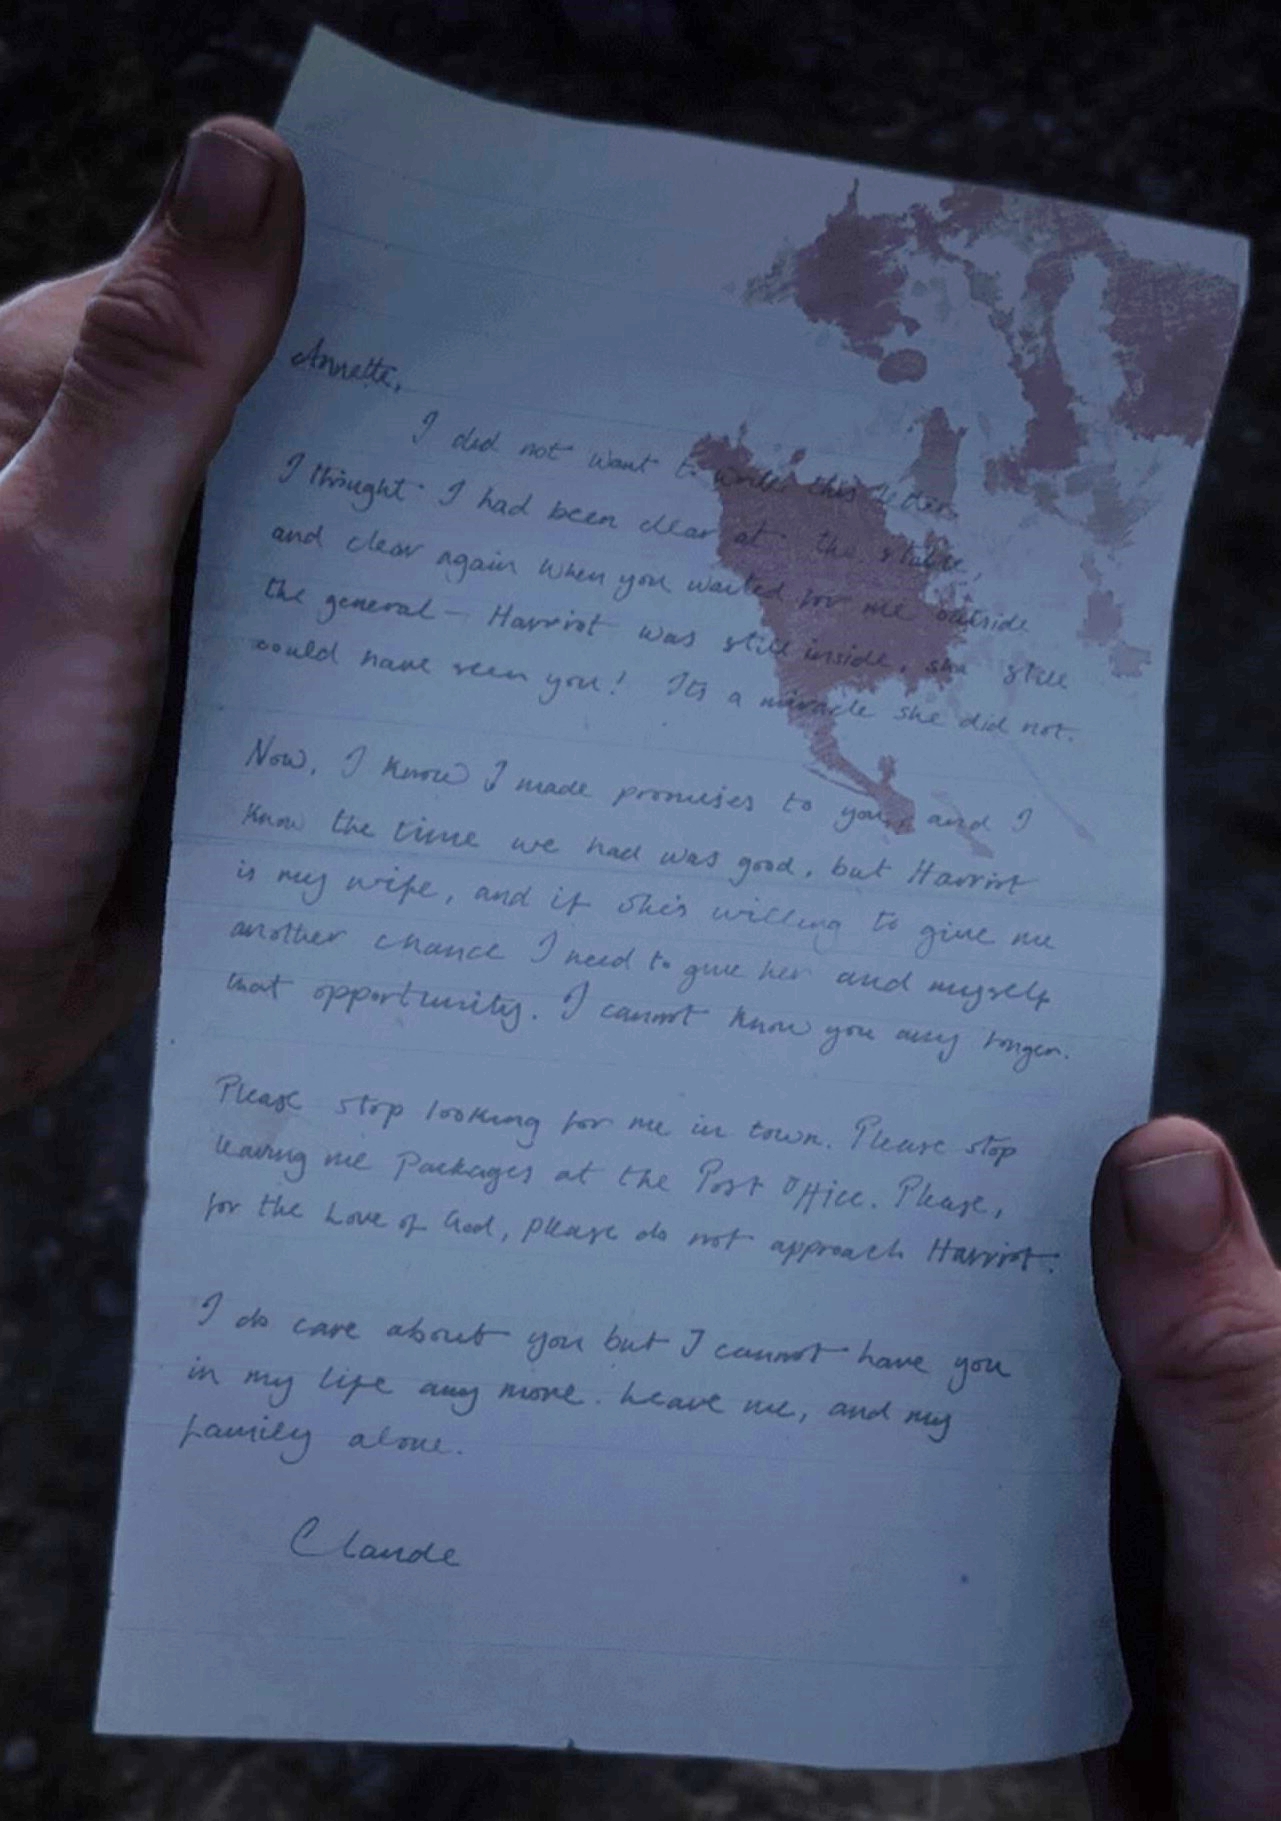 Annette,
I did not want to write this letter.
I thought I had been clear at the stable,
and clear again when you waited for me outside
the general – Harriot was still inside, she still
could have seen you! Its a miracle she did not.
Now, I know I made promises to you, and I
know the time we had was good, but Harriot
is my wife, and if she's willing to give me
another chance I need to give her and myself
that opportunity. I cannot know you any longer.
Please stop looking for me in town. Please stop
leaving me packages at the Post Office. Please,
for the Love of God, please do not approach Harriot.
I do care about you but I cannot have you
in my life any more. Leave me, and my
family alone.
Claude